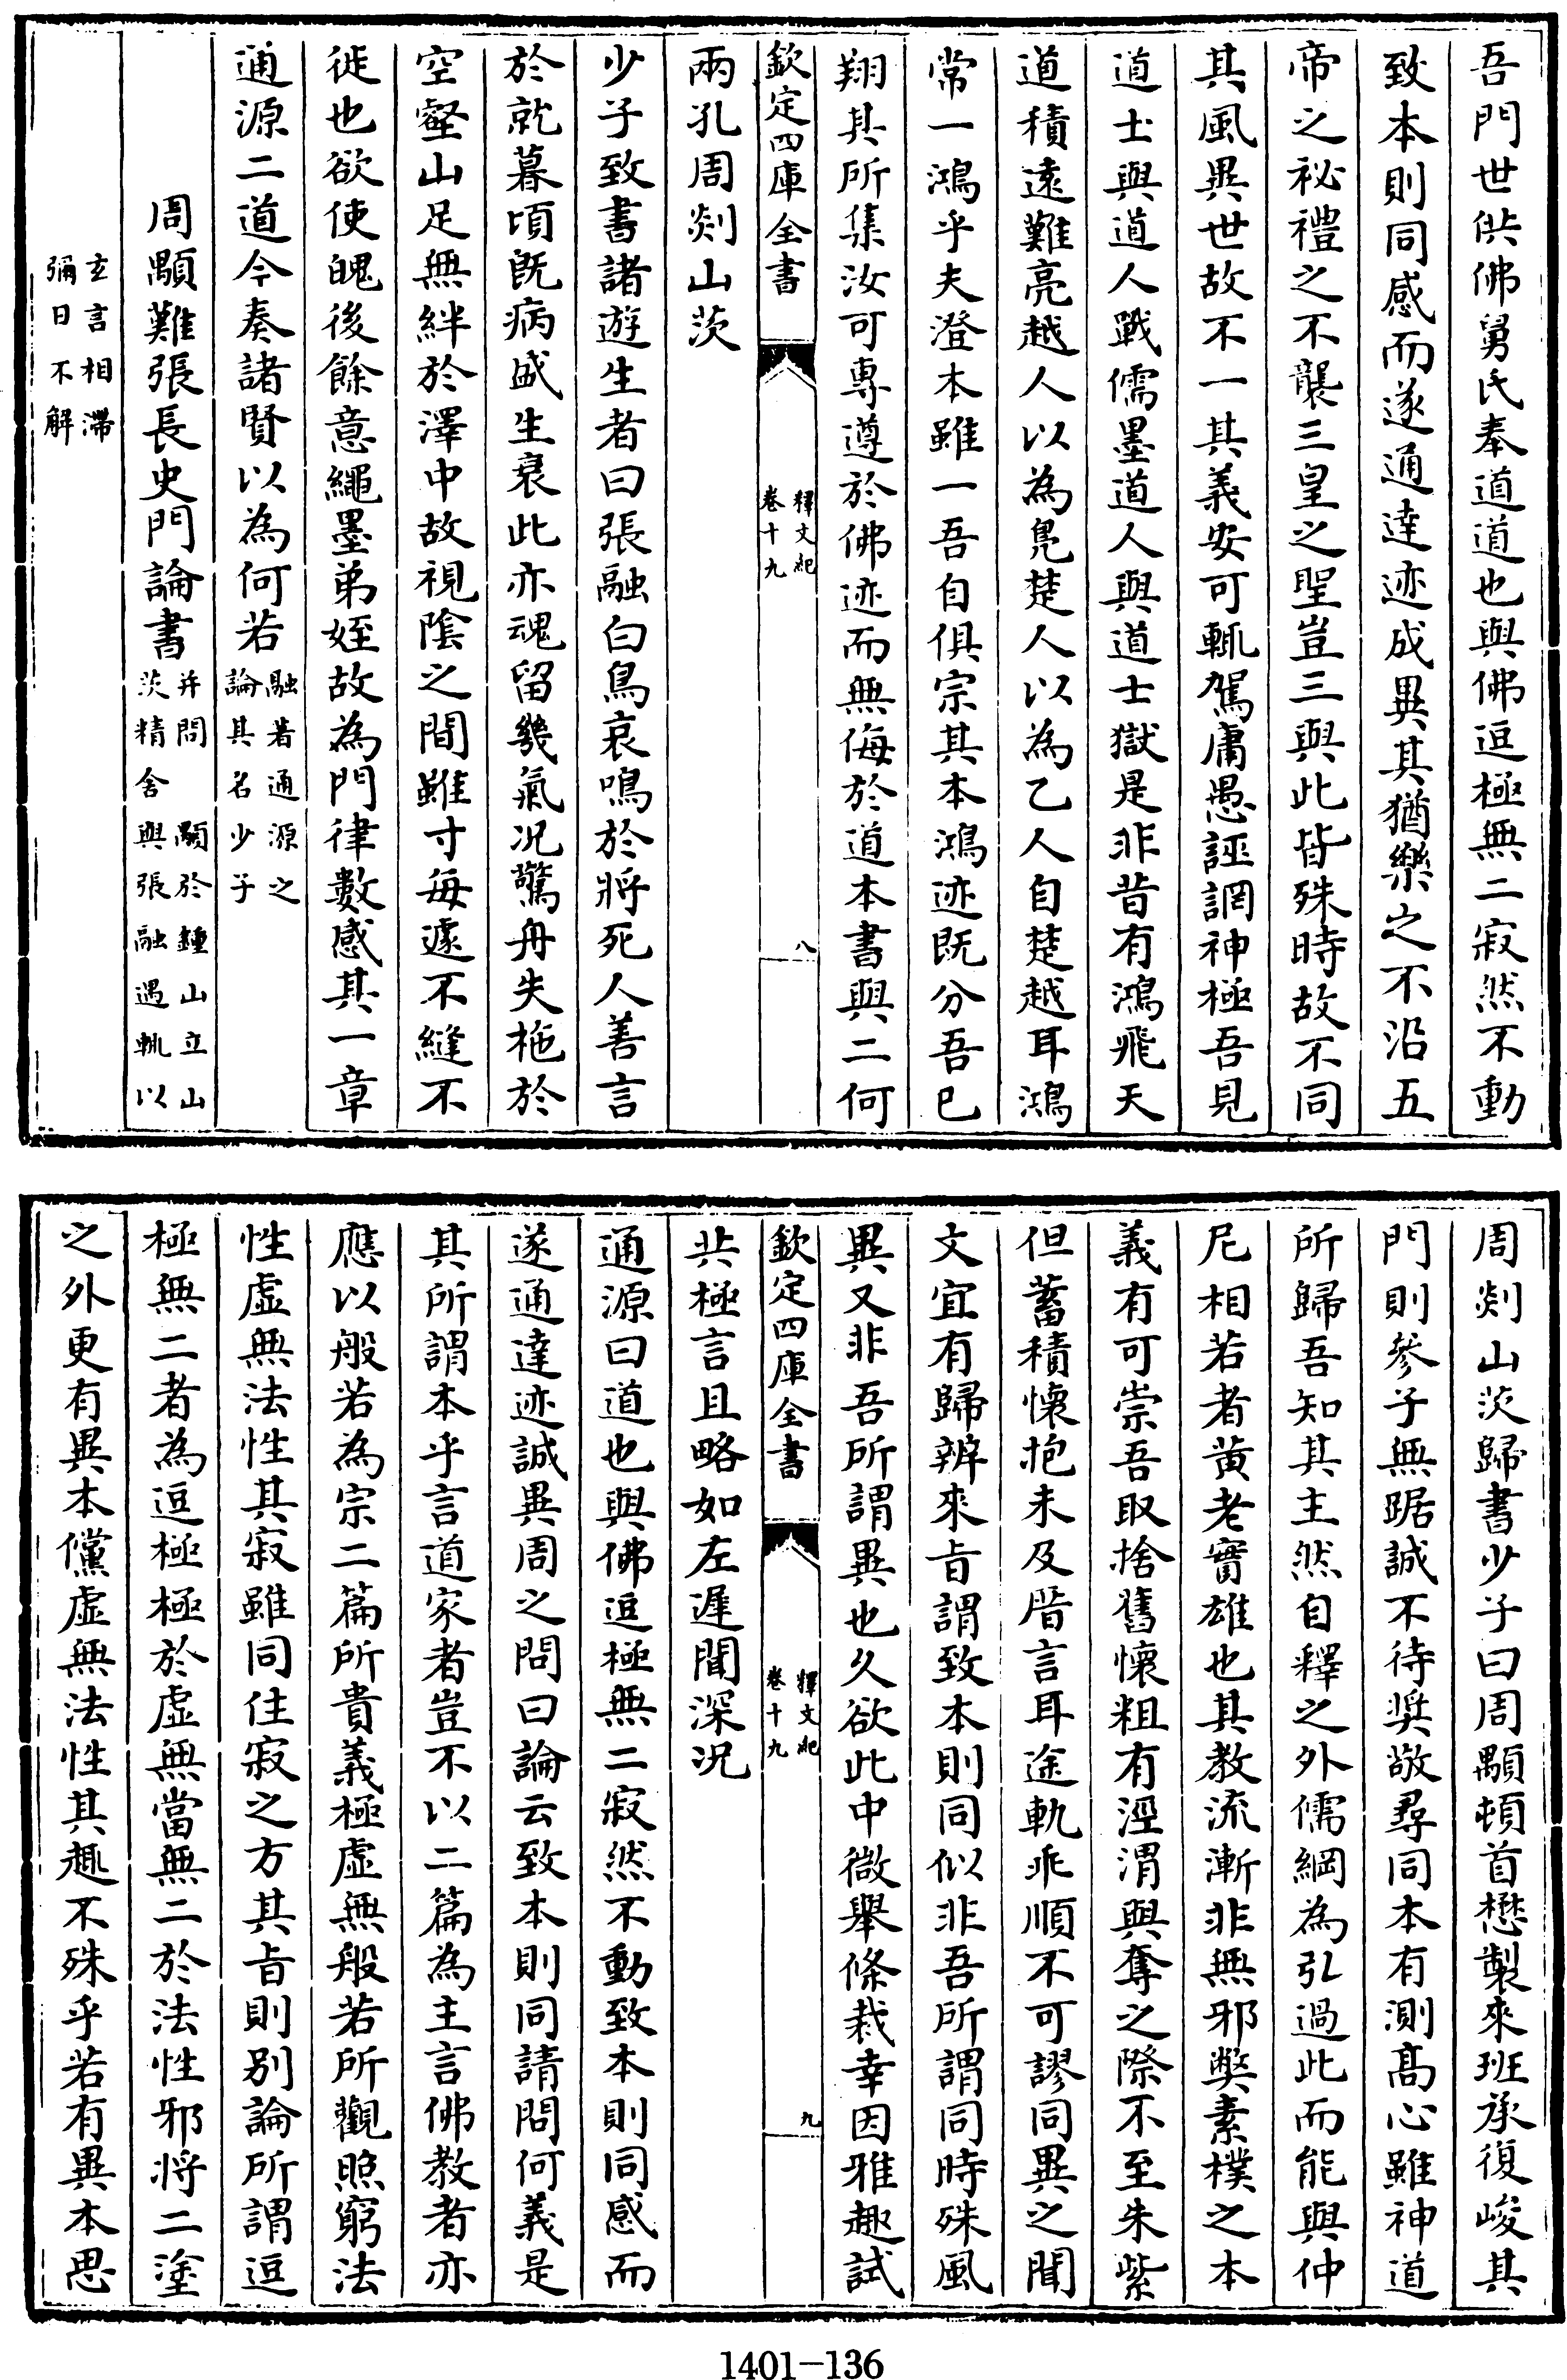 吾門世供佛舅氏奉道道也與佛逗極無二寂然不動
致本則同感而遂通達迹成異其猶樂之不沿五
帝之祕禮之不襲三皇之聖豈三與此皆殊時故不同
其風異世故不一其義安可輒駕庸愚誣罔神極吾見
道士與道人戰儒墨道人與道士獄是非昔有鴻飛天
道積遠難亮越人以為鳧楚人以為乙人自楚越耳鴻
常一鴻乎夫澄本雖一吾自俱宗其本鴻迹既分吾已
翔其所集汝可專遵於佛迹而無侮於道本書與二何
欽定四庫全書
釋文紀
卷十九
八
兩孔周剡山茨
少子致書諸遊生者曰張融白鳥哀鳴於將死人善言
於就暮頃既病盛生衰此亦魂留幾氣况驚舟失柂於
空壑山足無絆於澤中故視陰之間雖寸每遽不縫不
徙也欲使魄後餘意繩墨弟姪故為門律數感其一章
通源二道今奏諸賢以為何若
融著通源之
論其名少子
周顒難張長史門論書
并問 顒於鍾山立山
茨精舍 與張融遇輒以
玄言相滯
彌日不解
周剡山茨歸書少子曰周顒頓首懋製來班承復峻其
門則參子無踞誠不待奬敬尋同本有測高心雖神道
所歸吾知其主然自釋之外儒綱為弘過此而能與仲
尼相若者黄老實雄也其教流漸非無邪弊素樸之本
義有可崇吾取捨舊懷粗有涇渭與奪之際不至朱紫
但蓄積懷抱未及厝言耳途軌乖順不可謬同異之聞
文宜有歸辨來旨謂致本則同似非吾所謂同時殊風
異又非吾所謂異也久欲此中微舉條裁幸因雅趣試
欽定四庫全書
釋文紀
卷十九
九
共極言且略如左遲聞深况
通源曰道也與佛逗極無二寂然不動致本則同感而
遂通達迹誠異周之問曰論云致本則同請問何義是
其所謂本乎言道家者豈不以二篇為主言佛教者亦
應以般若為宗二篇所貴義極虚無般若所觀照窮法
性虚無法性其寂雖同住寂之方其旨則别論所謂逗
極無二者為逗極極於虚無當無二於法性邪將二塗
之外更有異本儻虚無法性其趣不殊乎若有異本思
1401-136